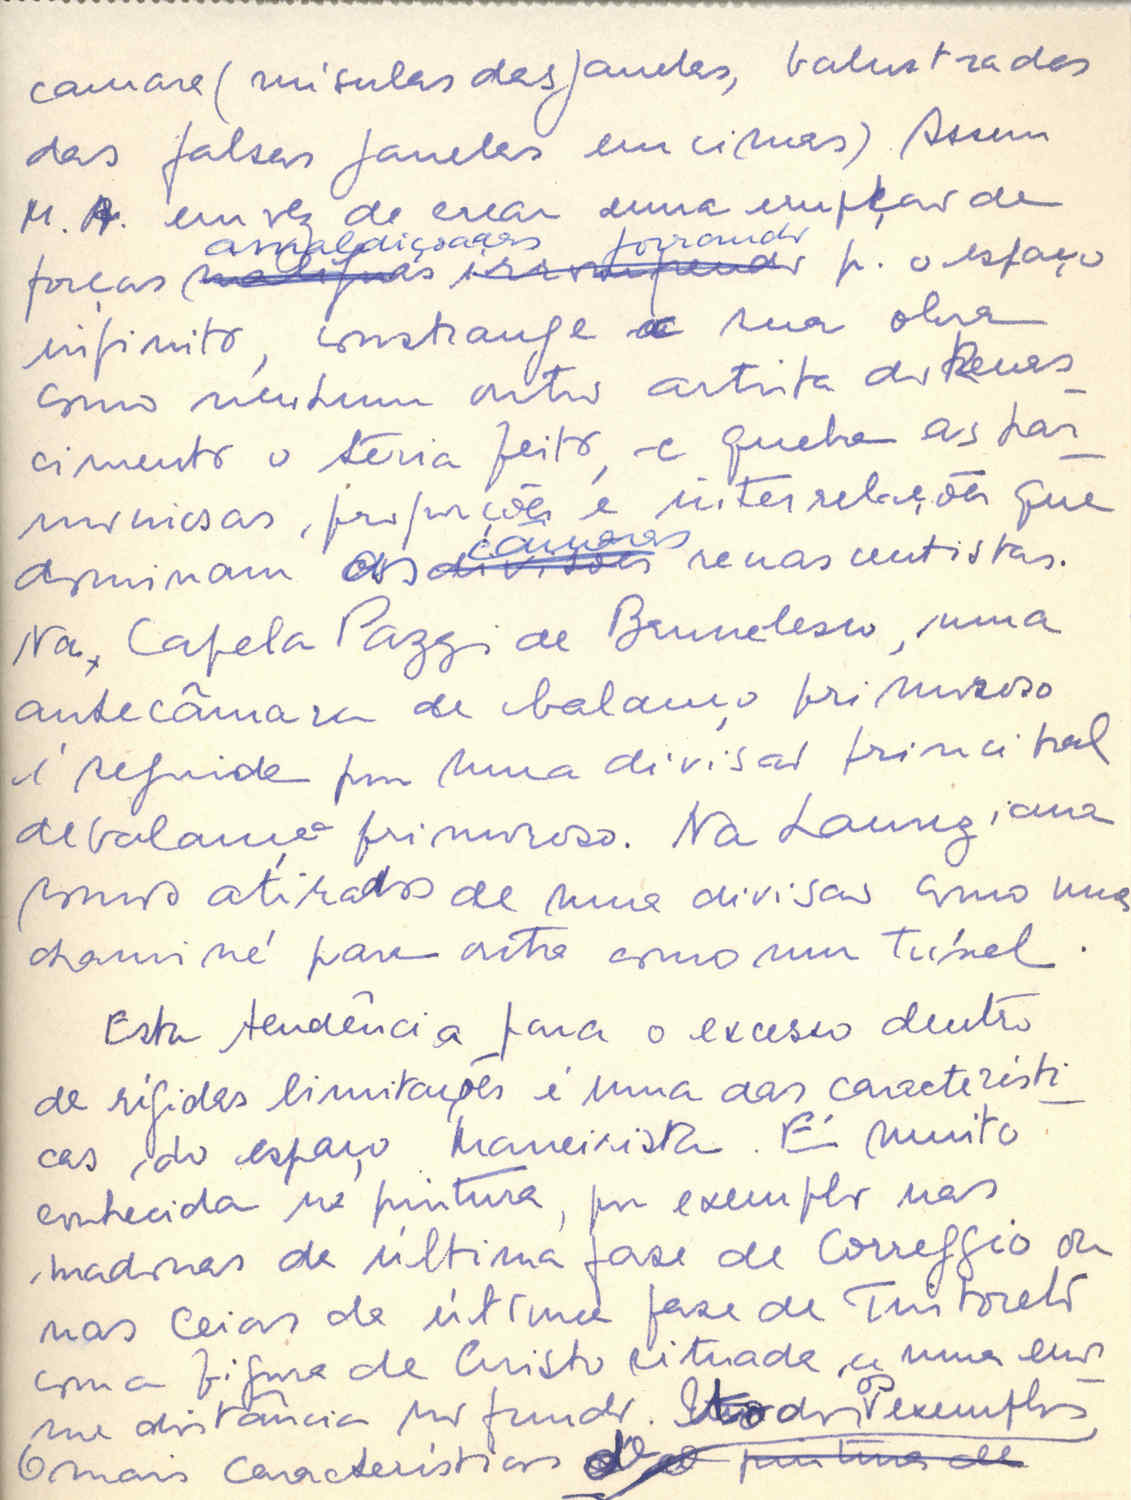 camara (mísulas das janelas, balustradas
das falsas janelas em cima). Assim
M. A. em vez de crear uma erupção de
amaldiçoadas forrando
forças malignas irrompendo p. o espaço
infinito, constrange a sua obra
como nenhum outro artista do Renas
cimento o teria feito, e quebra as har
moniosas proporções e interrelações que
câmaras
dominam as divisões renascentistas.
Na Capela Pazzi de Brunelesco, uma
antecâmara de balanço primoroso
é seguida por uma divisão principal
de balanço primoroso. Na Laurenziana
somos atirados de uma divisão como uma
chaminé para outra como um túnel.
Esta tendência para o excesso dentro
de rígidas limitações é uma das característi
cas do espaço Maneirista. É muito
conhecida na pintura, por exemplo nas
madonas da última fase de Correggio ou
nas Ceias da última fase de Tintoreto
com a figura de Cristo situada a uma enor
me distância no fundo. dos exemplos
mais característicos de pintura de